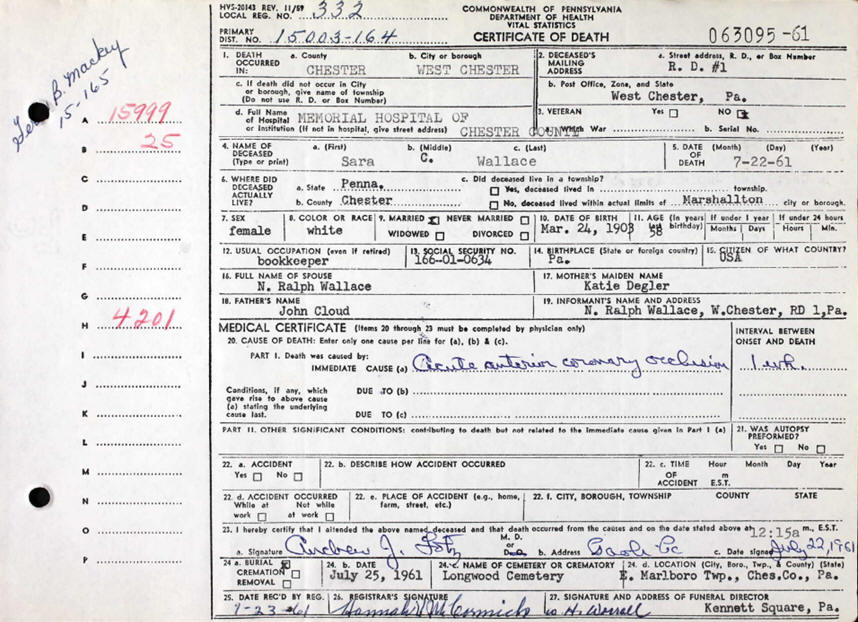 HVS-20143 REV. 11/59
LOCAL REG. NO. 332
COMMONWEALTH OF PENNSYLVANIA
DEPARTMENT OF HEALTH
VITAL STATISTICS
CERTIFICATE OF DEATH
PRIMARY
DIST. NO. 15003-164
063095-61
B. Mackey
15-165
A 15999
B 25
C
D
E
F
G
H 4201
I
J
K
L
M
N
O
P
1. DEATH OCCURRED IN: a. County CHESTER b. City or borough WEST CHESTER
c. If death did not occur in City or borough, give name of township (Do not use R. D. or Box Number)
d. Full Name of Hospital or Institution (If not in hospital, give street address) MEMORIAL HOSPITAL OF CHESTER COUNTY
2. DECEASED'S MAILING ADDRESS a. Street address, R. D., or Box Number R. D. #1
b. Post Office, Zone, and State West Chester, Pa.
3. VETERAN Yes NO x
a. Which War b. Serial No.
4. NAME OF DECEASED (Type or print) a. (First) Sara b. (Middle) C. c. (Last) Wallace
5. DATE OF DEATH (Month) (Day) (Year) 7-22-61
6. WHERE DID DECEASED ACTUALLY LIVE? a. State Penna. b. County Chester
c. Did deceased live in a township?
Yes, deceased lived in township.
No, deceased lived within actual limits of Marshallton city or borough.
7. SEX female
8. COLOR OR RACE white
9. MARRIED x NEVER MARRIED WIDOWED DIVORCED
10. DATE OF BIRTH Mar. 24, 1903
11. AGE (In years last birthday) 58 If under 1 year Months Days If under 24 hours Hours Min.
12. USUAL OCCUPATION (even if retired) bookkeeper
13. SOCIAL SECURITY NO. 166-01-0634
14. BIRTHPLACE (State or foreign country) Pa.
15. CITIZEN OF WHAT COUNTRY? USA
16. FULL NAME OF SPOUSE N. Ralph Wallace
17. MOTHER'S MAIDEN NAME Katie Degler
18. FATHER'S NAME John Cloud
19. INFORMANT'S NAME AND ADDRESS N. Ralph Wallace, W.Chester, RD 1,Pa.
MEDICAL CERTIFICATE (Items 20 through 23 must be completed by physician only)
20. CAUSE OF DEATH: Enter only one cause per line for (a), (b) & (c).
INTERVAL BETWEEN ONSET AND DEATH
PART I. Death was caused by:
IMMEDIATE CAUSE (a) Acute anterior coronary occlusion 1 wk.
Conditions, if any, which gave rise to above cause (a) stating the underlying cause last.
DUE TO (b)
DUE TO (c)
PART II. OTHER SIGNIFICANT CONDITIONS: contributing to death but not related to the immediate cause given in Part I (a)
21. WAS AUTOPSY PREFORMED? Yes No
22. a. ACCIDENT Yes No
22. b. DESCRIBE HOW ACCIDENT OCCURRED
22. c. TIME OF ACCIDENT Hour Month Day Year m E.S.T.
22. d. ACCIDENT OCCURRED While at work Not while at work
22. e. PLACE OF ACCIDENT (e.g., home, farm, street, etc.)
22. f. CITY, BOROUGH, TOWNSHIP COUNTY STATE
23. I hereby certify that I attended the above named deceased and that death occurred from the causes and on the date stated above at 12:15a m., E.S.T.
a. Signature Andrew J. Lotz M. D. or b. Address Paoli Pa c. Date signed July 22, 1961
24 a. BURIAL x CREMATION REMOVAL
24. b. DATE July 25, 1961
24. c. NAME OF CEMETERY OR CREMATORY Longwood Cemetery
24. d. LOCATION (City, Boro., Twp., & County) (State) E. Marlboro Twp., Ches.Co., Pa.
25. DATE REC'D BY REG. 7-23-61
26. REGISTRAR'S SIGNATURE Hannah McCormick
27. SIGNATURE AND ADDRESS OF FUNERAL DIRECTOR H. Worrall Kennett Square, Pa.